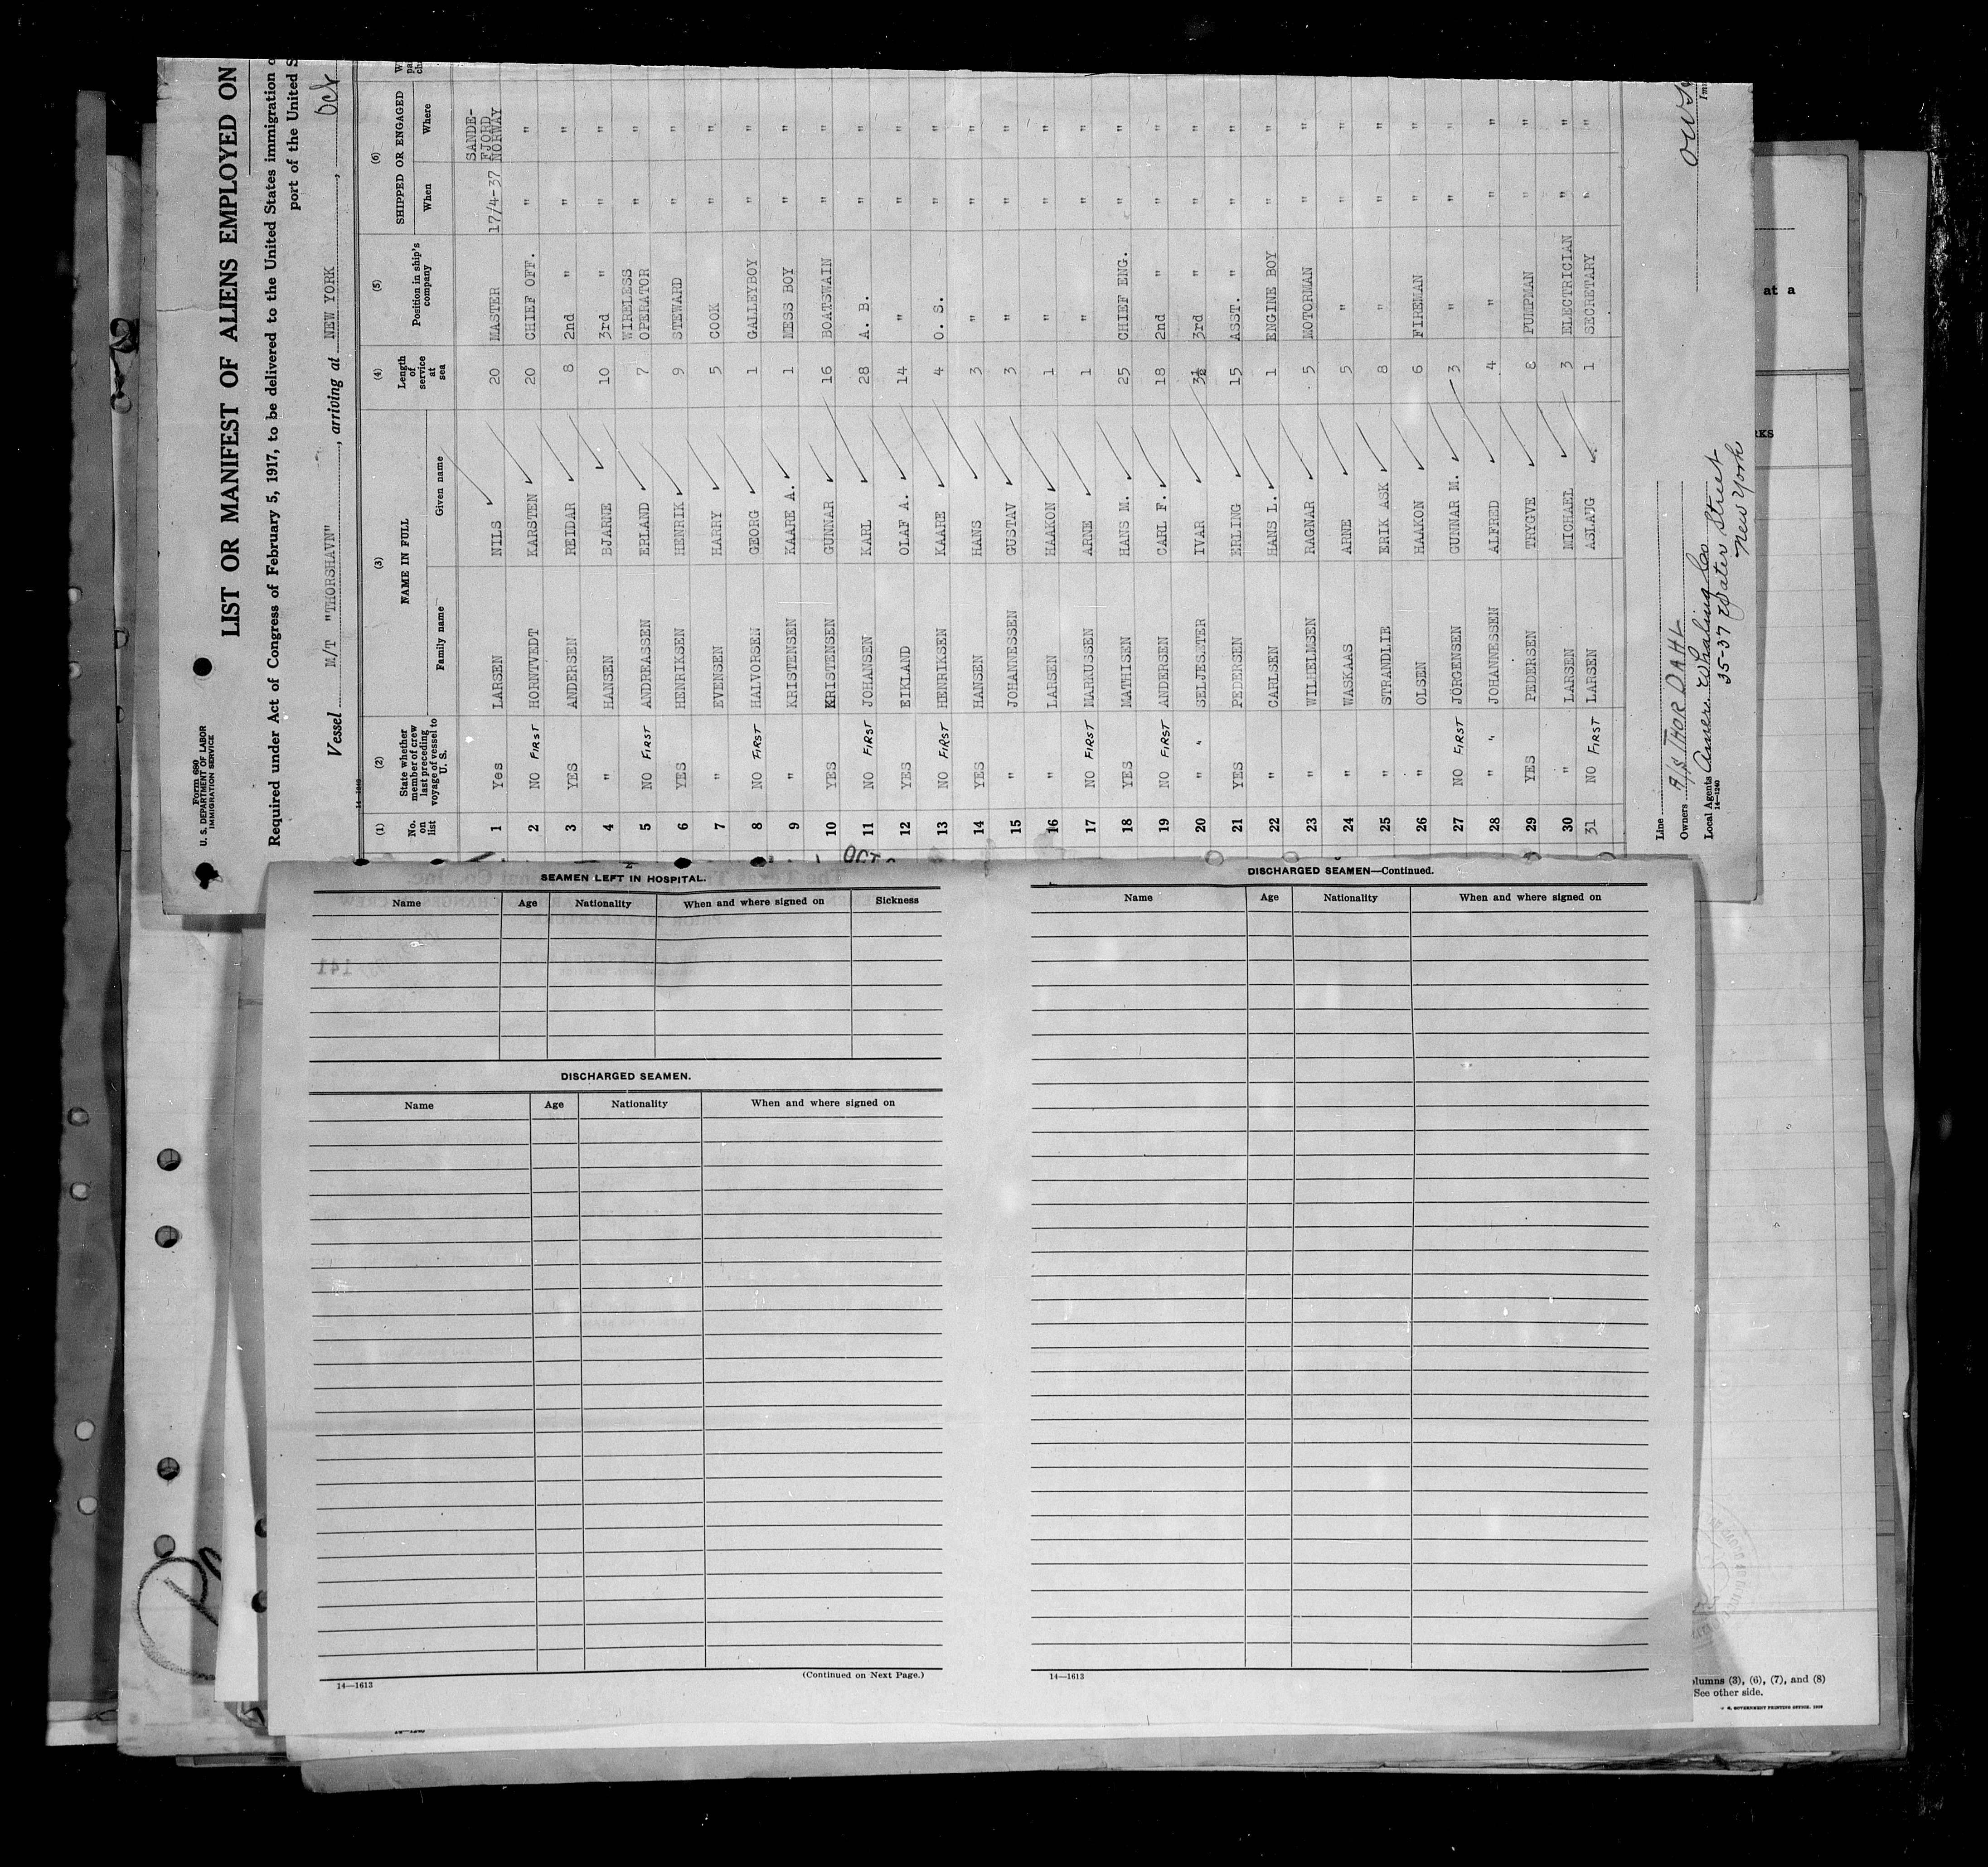 Form 680
U. S. DEPARTMENT OF LABOR
IMMIGRATION SERVICE
LIST OR MANIFEST OF ALIENS EMPLOYED ON
Required under Act of Congress of February 5, 1917, to be delivered to the United States immigration
port of the United S
Vessel M/T "THORSHAVN", arriving at NEW YORK, Oct
14-1240
(1) (2) (3) (4) (5) (6)
No. on list State whether member of crew last preceding voyage of vessel to U. S. NAME IN FULL Length of service at sea Position in ship's company SHIPPED OR ENGAGED
Family name Given name When Where
1 Yes LARSEN NILS 20 MASTER 17/4-37 SANDE-FJORD NORWAY
2 NO FIRST HORNTVEDT KARSTEN 20 CHIEF OFF. " "
3 YES ANDERSEN REIDAR 8 2nd " " "
4 " HANSEN BJARNE 10 3rd " " "
5 NO FIRST ANDREASSEN ERLAND 7 WIRELESS OPERATOR " "
6 YES HENRIKSEN HENRIK 9 STEWARD " "
7 " EVENSEN HARRY 5 COOK " "
8 NO FIRST HALVORSEN GEORG 1 GALLEYBOY " "
9 " KRISTENSEN KAARE A. 1 MESS BOY " "
10 YES KRISTENSEN GUNNAR 16 BOATSWAIN " "
11 NO FIRST JOHANSEN KARL 28 A. B. " "
12 YES EIKLAND OLAF A. 14 " " "
13 NO FIRST HENRIKSEN KAARE 4 O. S. " "
14 YES HANSEN HANS 3 " " "
15 " JOHANNESSEN GUSTAV 3 " " "
16 " LARSEN HAAKON 1 " " "
17 NO FIRST MARKUSSEN ARNE 1 " " "
18 YES MATHISEN HANS M. 25 CHIEF ENG. " "
19 NO FIRST ANDERSEN CARL F. 18 2nd " " "
20 " " SELJESÆTER IVAR 3rd " " "
21 YES PEDERSEN ERLING 15 ASST. " " "
22 " CARLSEN HANS L. 1 ENGINE BOY " "
23 " WILHELMSEN RAGNAR 5 MOTORMAN " "
24 " WASKAAS ARNE 5 " " "
25 " STRANDLIE ERIK ASK 8 " " "
26 " OLSEN HAAKON 6 FIREMAN " "
27 NO FIRST JÖRGENSEN GUNNAR M. 3 " " "
28 " " JOHANNESSEN ALFRED 4 " " "
29 YES PEDERSEN TRYGVE 8 PUMPMAN " "
30 " LARSEN MICHAEL 3 ELECTRICIAN " "
31 NO FIRST LARSEN ASLAUG 1 SECRETARY " "
Line
Owners A/S THOR DAHL
Local Agents Ameri. Whaling Co
14-1240
35-37 Water Street
New York
SEAMEN LEFT IN HOSPITAL.
Name Age Nationality When and where signed on Sickness
DISCHARGED SEAMEN.
Name Age Nationality When and where signed on
(Continued on Next Page.)
14—1613
DISCHARGED SEAMEN—Continued.
Name Age Nationality When and where signed on
14—1613
at a
RKS
olumns (3), (6), (7), and (8)
See other side.